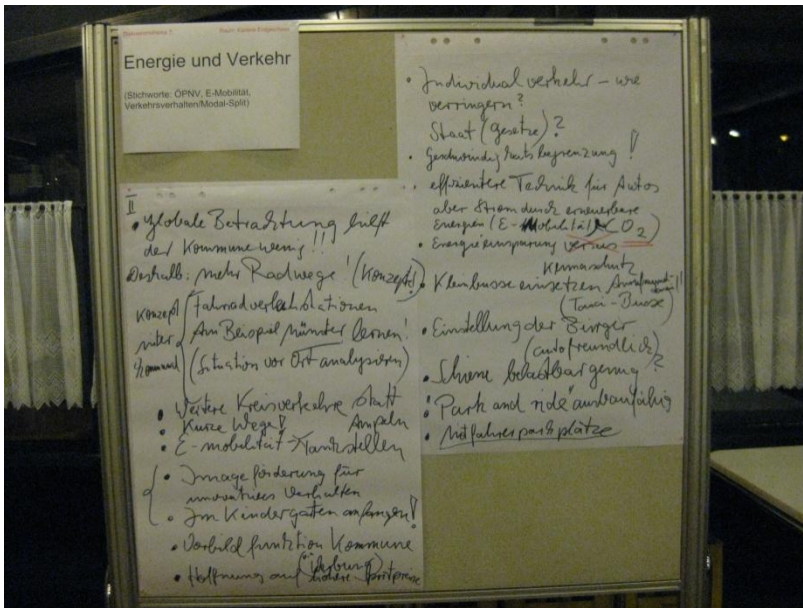 Energie und Verkehr
(Stichworte: ÖPNV, E-Mobilität,
Verkehrsverhalten/Modal-Split)
II
• Globale Betrachtung hilft
der Kommune wenig!!
Deshalb: mehr Radwege! (Konzept!)
Konzept
unter
Fahrradverleihstationen
Am Beispiel Münster lernen!
(Situation vor Ort analysieren)
• Weitere Kreisverkehre statt
Ampeln
• Kurze Wege!
• E-mobilität → Tankstellen
• Imageförderung für
innovatives Verhalten
• Im Kindergarten anfangen!
• Vorbildfunktion Kommune
(Werbung)
• Hoffnung auf höhere Spritpreise
• Individualverkehr – wie
verringern?
Staat (Gesetze)?
• Geschwindigkeitsbegrenzung!
• effizientere Technik für Autos
aber Strom durch erneuerbare
Energien (E-Mobilität CO2)
• Energieeinsparung versus
Klimaschutz
• Kleinbusse einsetzen
(Taxi-Busse)
• Einstellung der Bürger
(autofreundlich)
• Schiene belastbar genug?
• "Park and ride" ausbaufähig
• Mitfahrerparkplätze